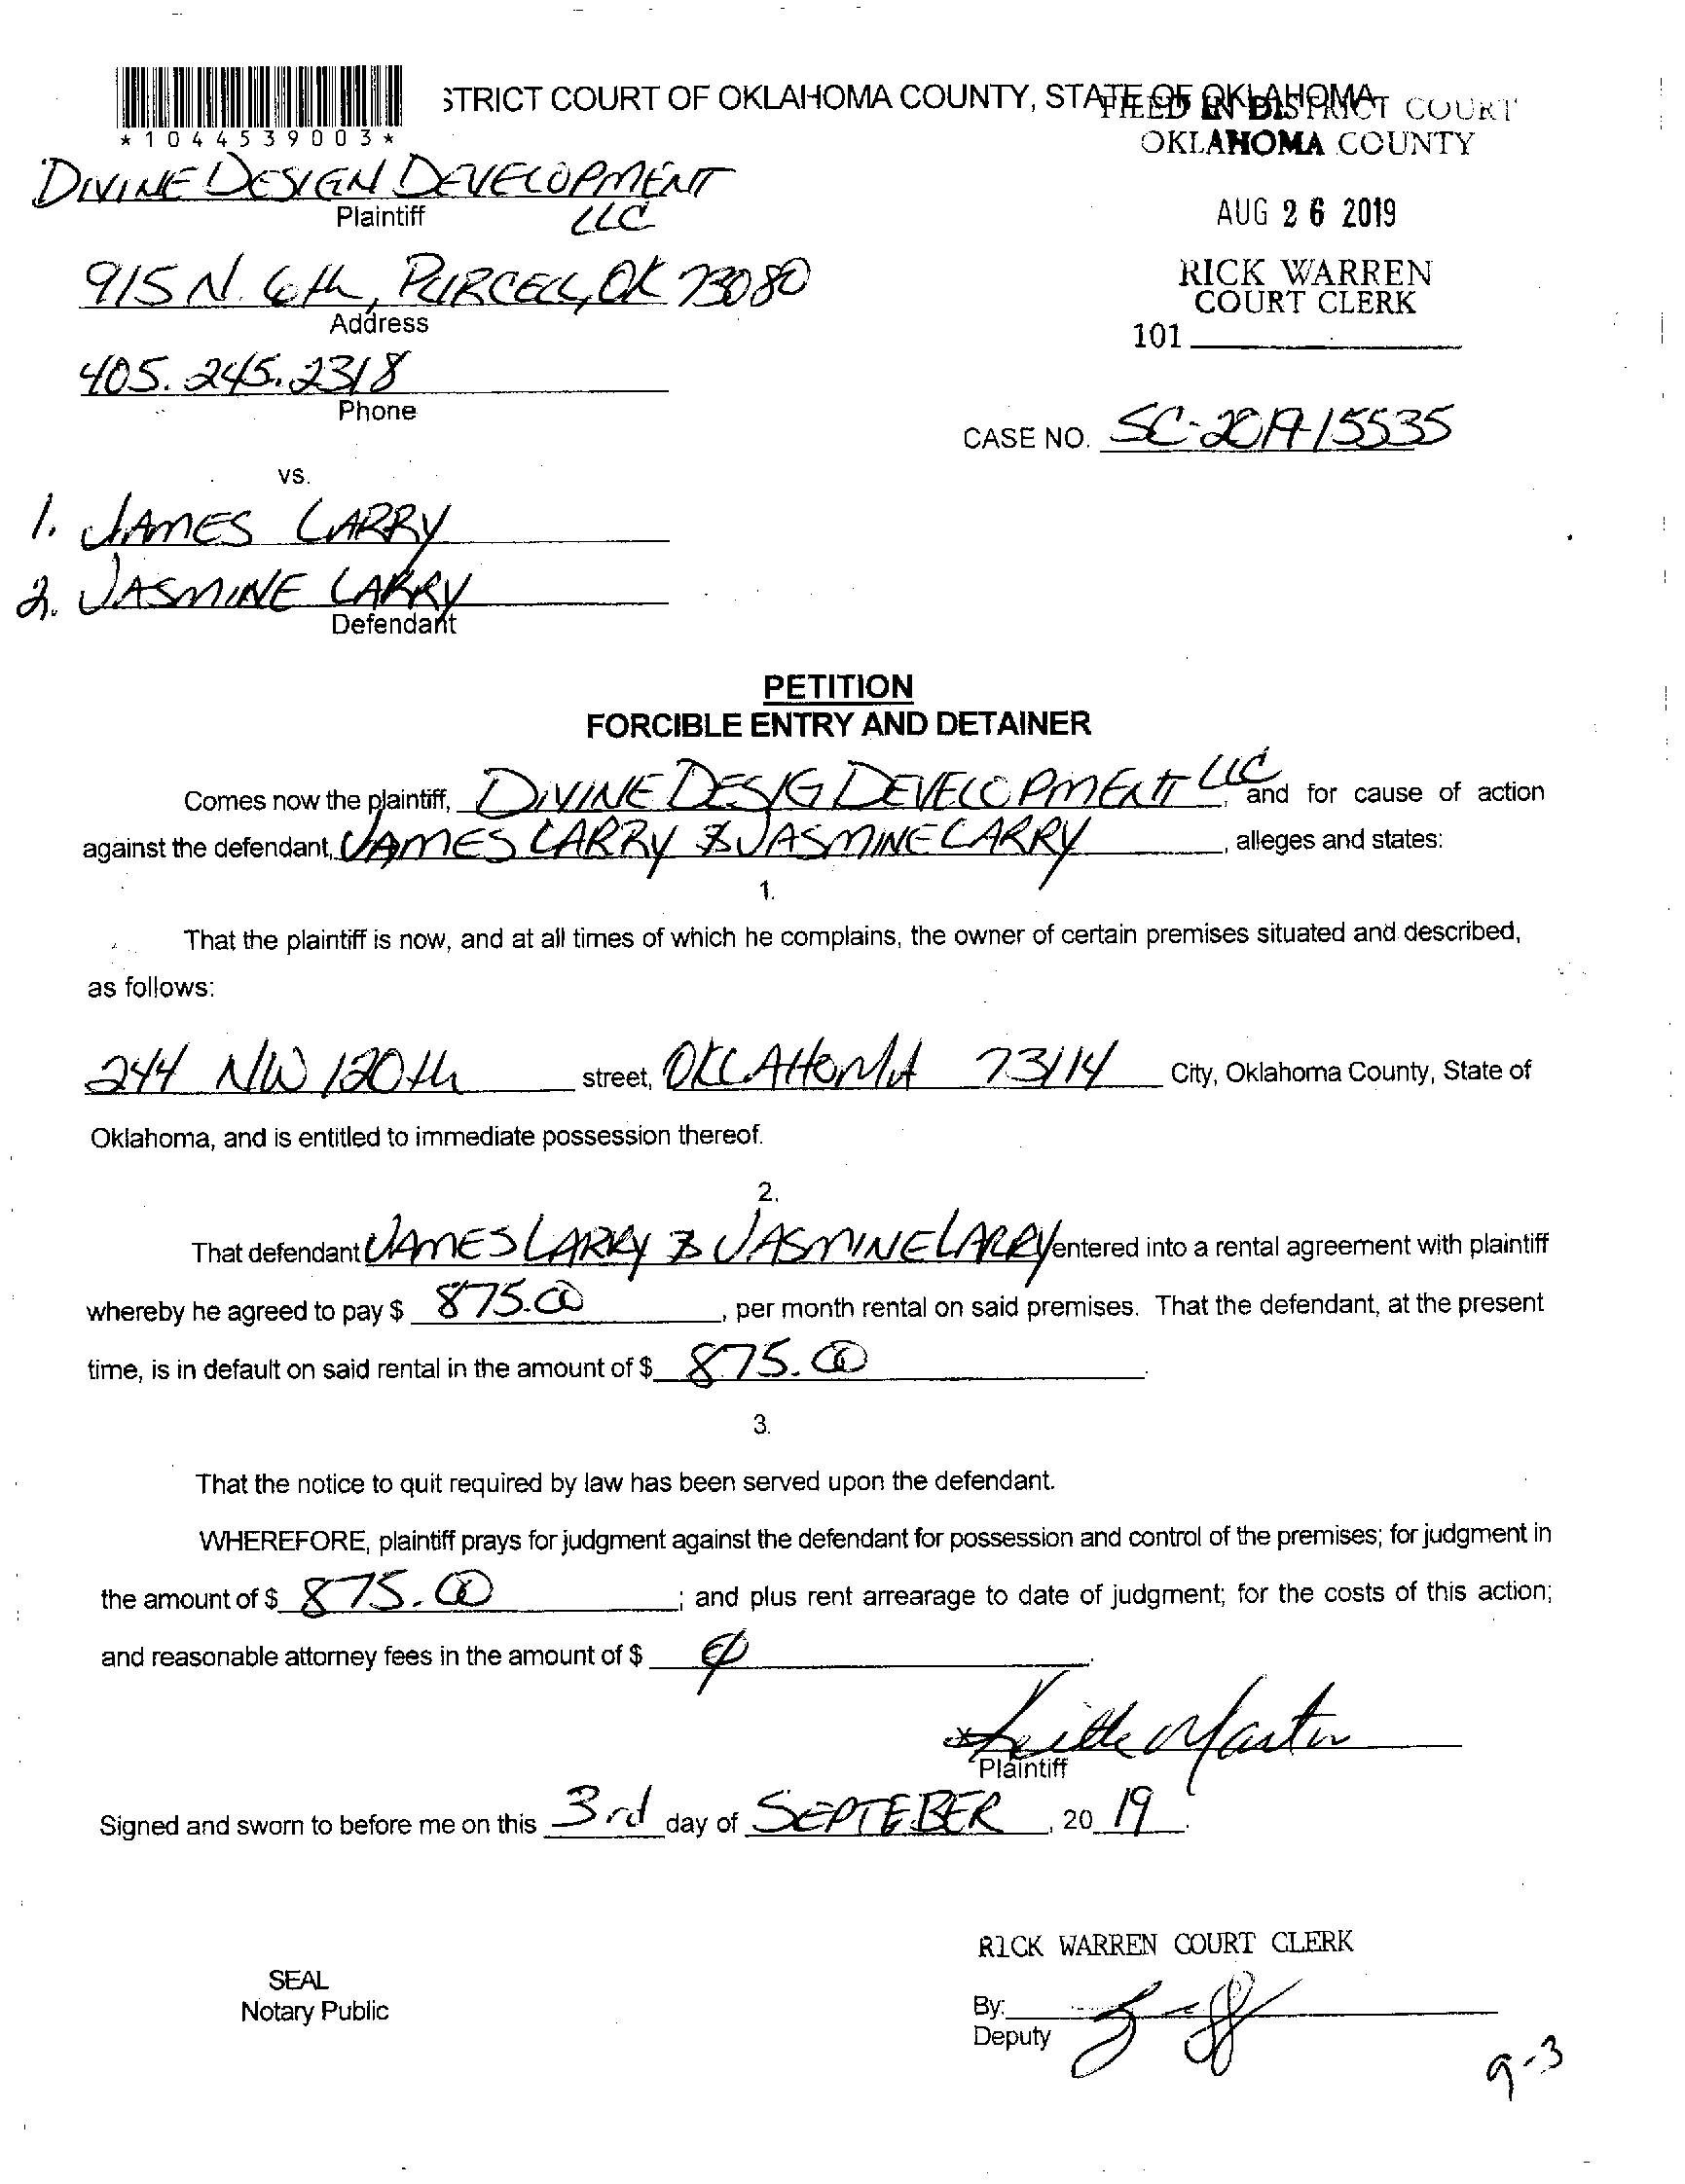 STRICT COURT OF OKLAHOMA COUNTY, STATE OF OKLAHOMA
FILED IN DISTRICT COURT
OKLAHOMA COUNTY
*1044539003*
DIVINE DESIGN DEVELOPMENT
Plaintiff LLC
AUG 26 2019
915 N. 6th, PURCELL, OK 73080
Address
RICK WARREN
COURT CLERK
101
405.245.2318
Phone
CASE NO. SC-2019-15535
vs.
1. JAMES LARRY
2. JASMINE LARRY
Defendant
PETITION
FORCIBLE ENTRY AND DETAINER
Comes now the plaintiff, DIVINE DESIG DEVELOPMENT LLC, and for cause of action
against the defendant, JAMES LARRY & JASMINE LARRY, alleges and states:
1.
That the plaintiff is now, and at all times of which he complains, the owner of certain premises situated and described,
as follows:
244 NW 120th street, OKLAHOMA 73114 City, Oklahoma County, State of
Oklahoma, and is entitled to immediate possession thereof.
2.
That defendant JAMES LARRY & JASMINE LARRY entered into a rental agreement with plaintiff
whereby he agreed to pay $ 875.00, per month rental on said premises. That the defendant, at the present
time, is in default on said rental in the amount of $ 875.00.
3.
That the notice to quit required by law has been served upon the defendant.
WHEREFORE, plaintiff prays for judgment against the defendant for possession and control of the premises; for judgment in
the amount of $ 875.00; and plus rent arrearage to date of judgment; for the costs of this action;
and reasonable attorney fees in the amount of $ ∅.
x Keith Martin
Plaintiff
Signed and sworn to before me on this 3rd day of SEPTEBER, 20 19.
RICK WARREN COURT CLERK
SEAL
Notary Public
By:
Deputy
9-3